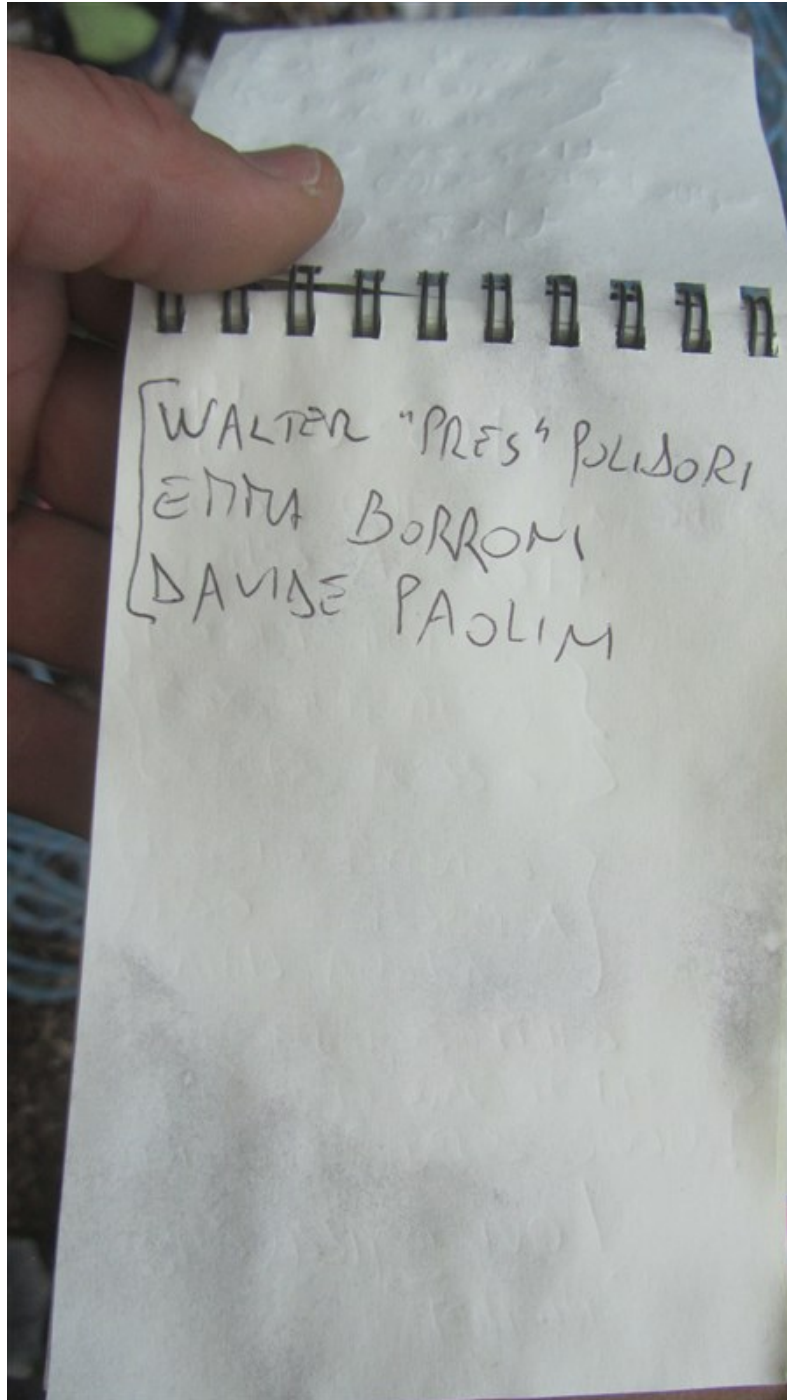 WALTER "PRES" POLIDORI
EMMA BORRONI
DAVIDE PAOLINI